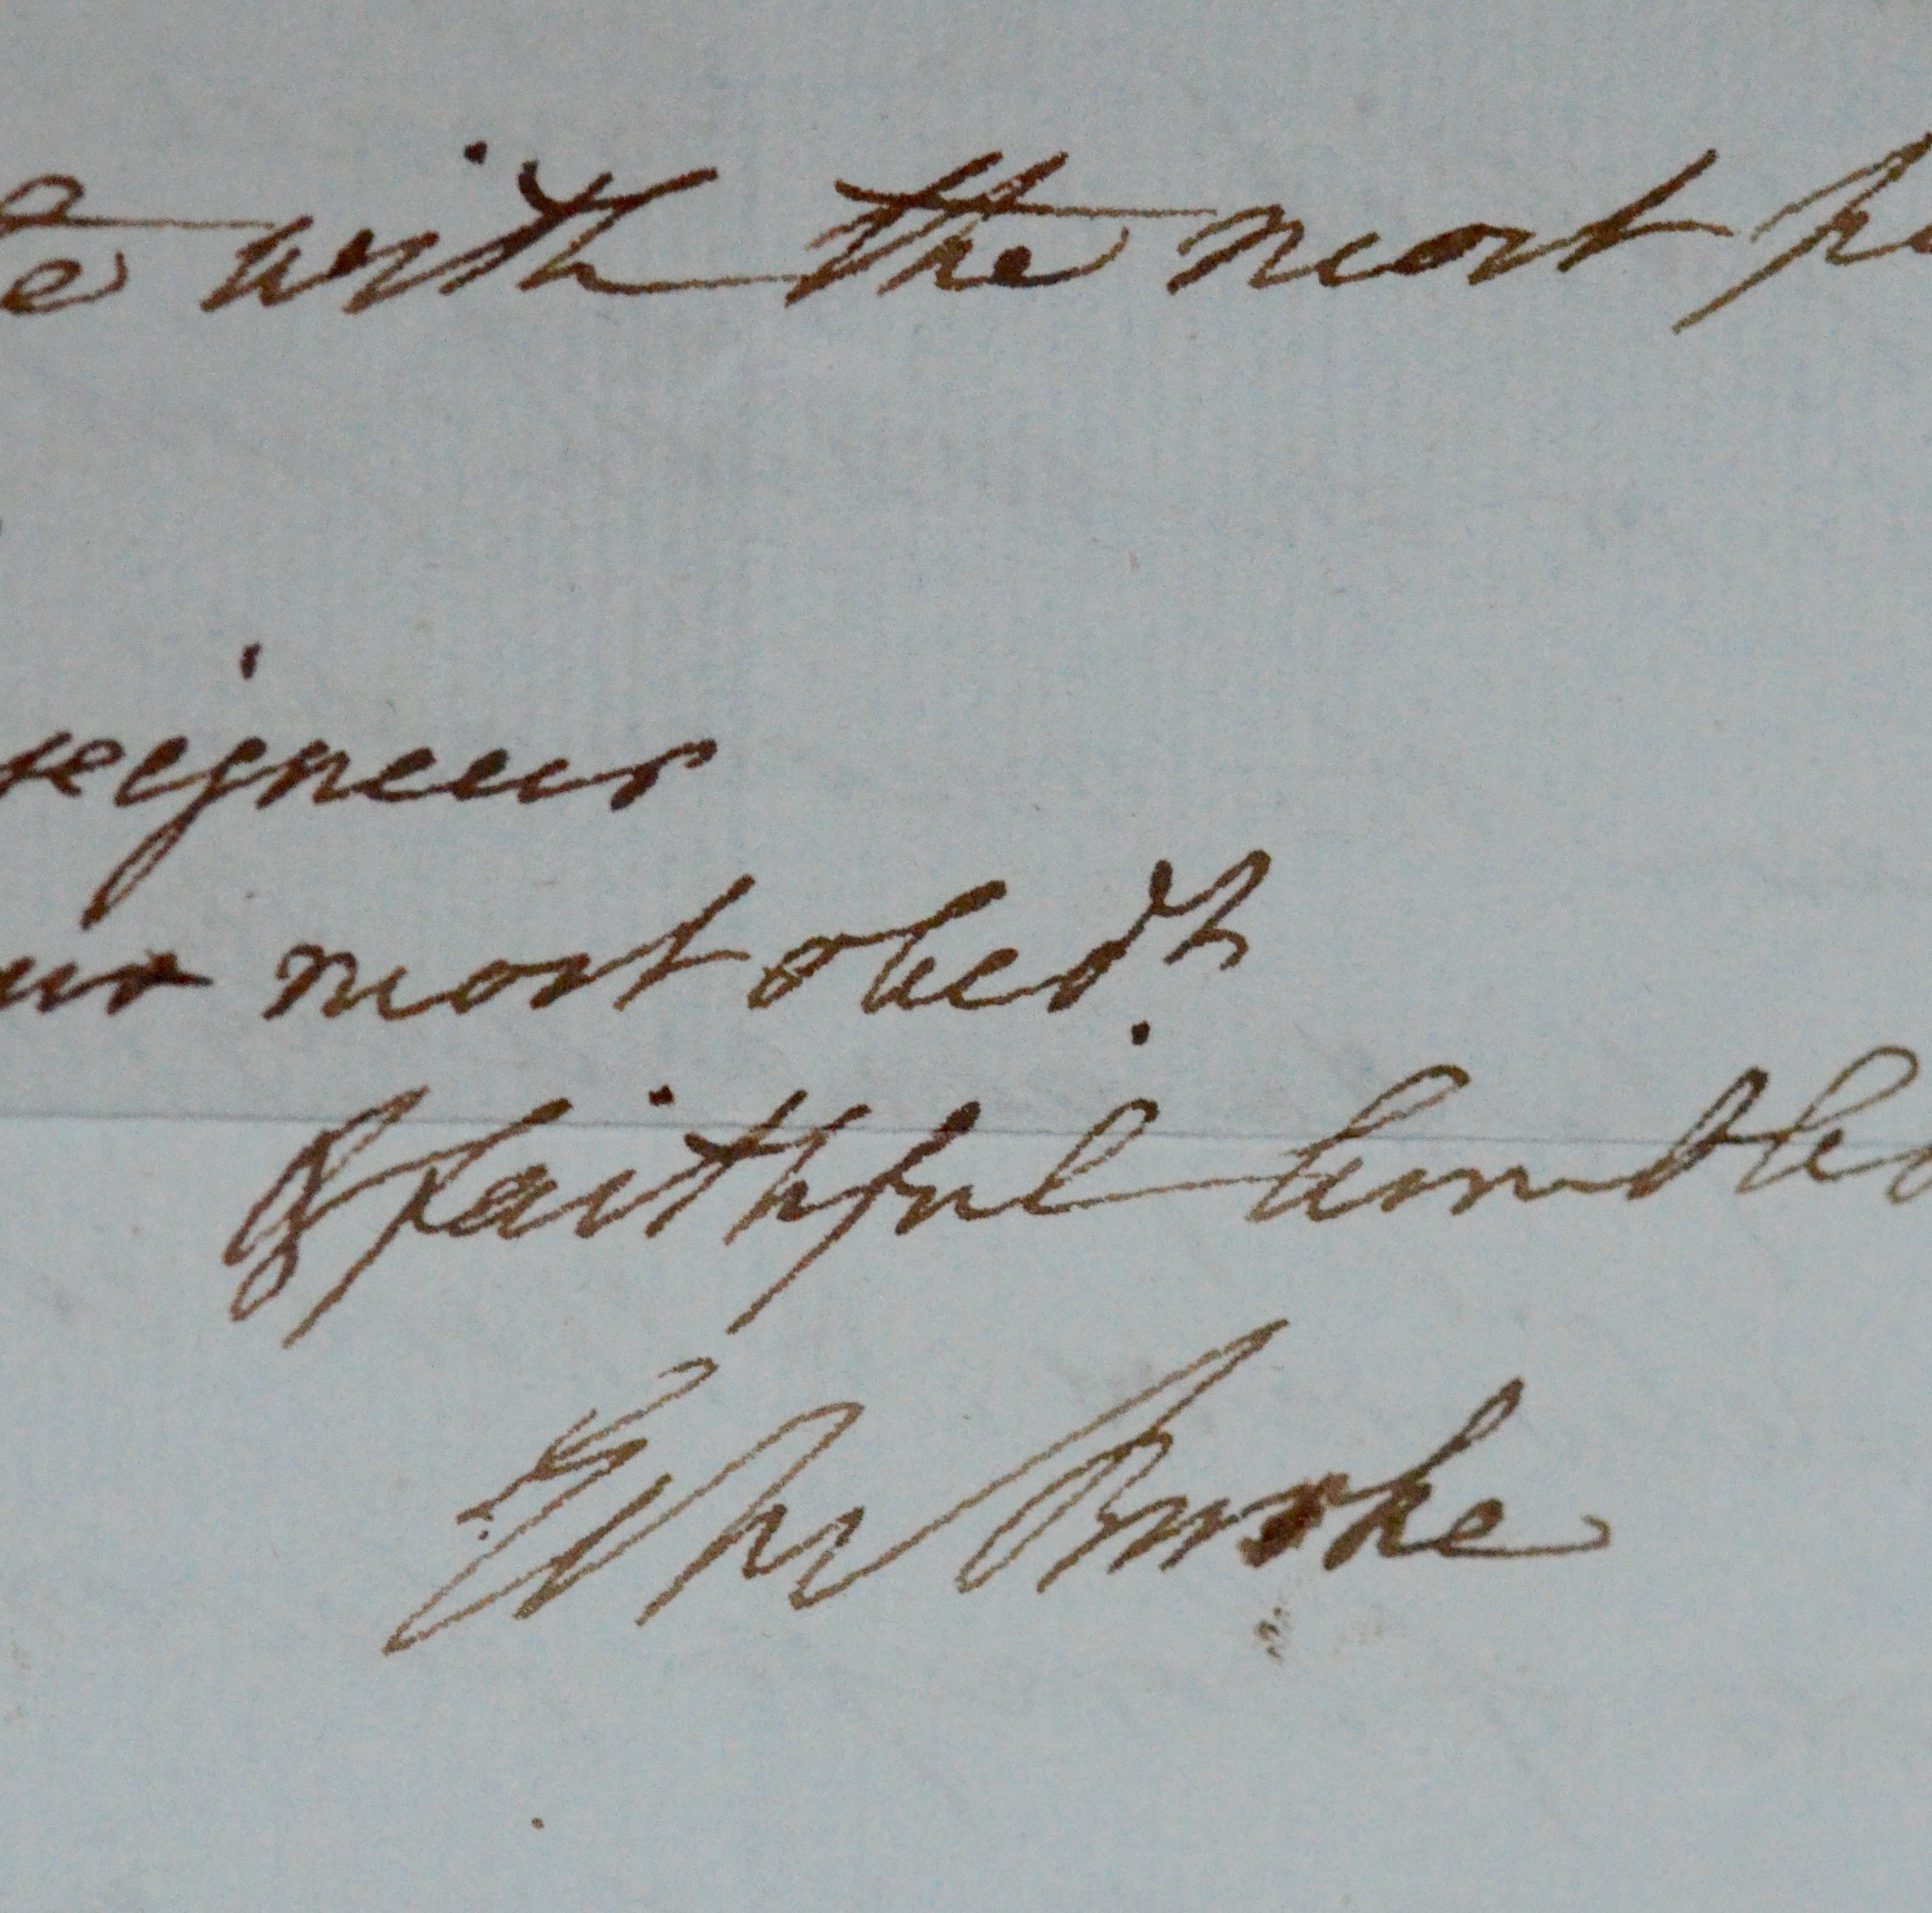 te with the most pe
seigneur
ur most obedt
& faithful humble
Edm Burke